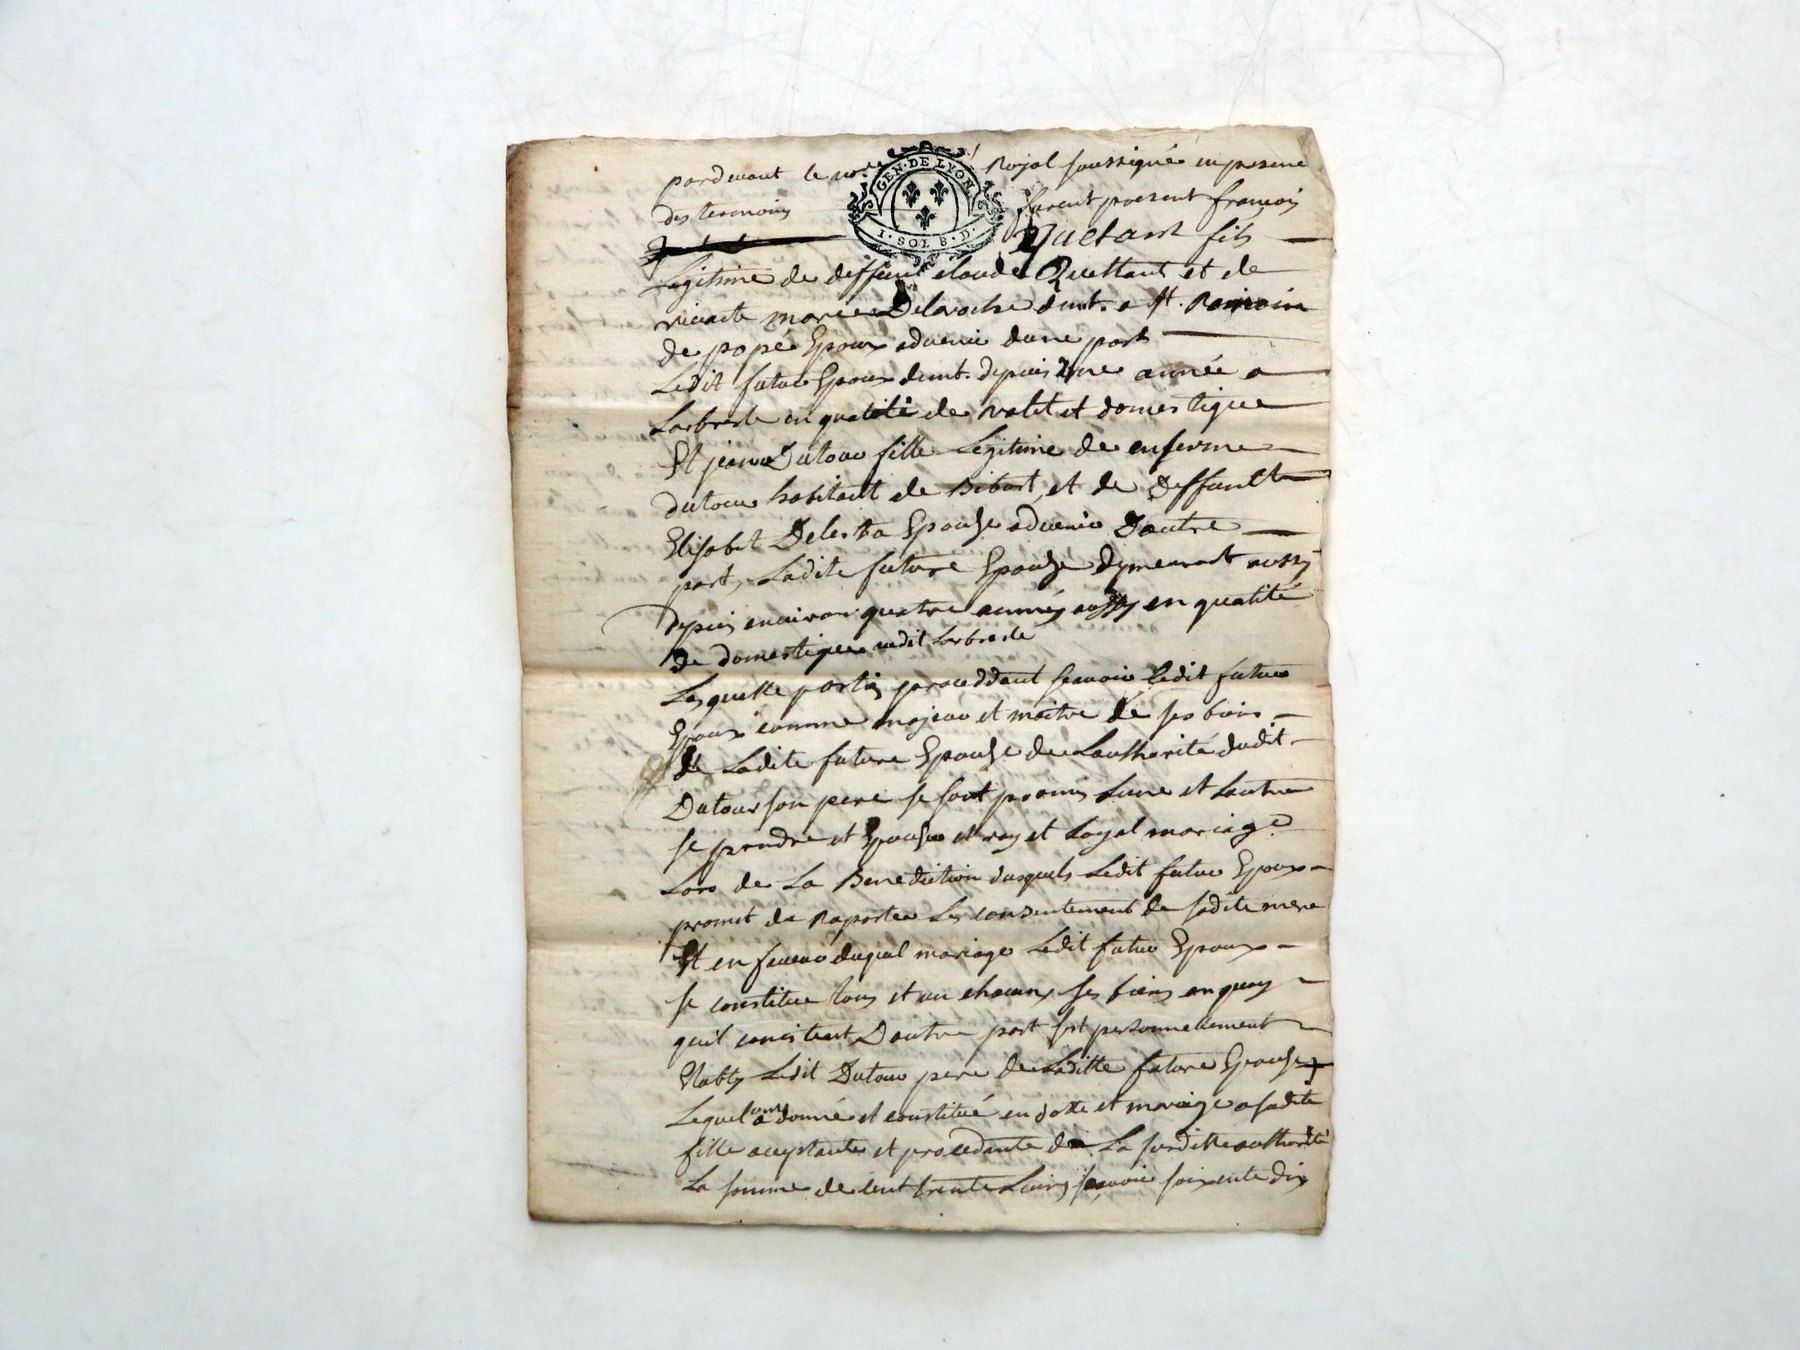 pardevant le no.re Royal soussigné en presence
GEN. DE LYON
I. SOL 8. D.
des temoins furent present francois
Quetant fils
Legitime de deffunt claude Quettant et de
vivante marie Delaroche demt. a st. Romain
de popé Epoux advenir dune part
Ledit futur Epoux demt. depuis une année a
Larbresle en qualité de valet et domestique
Et jeanne Dutour fille Legitime de
dutour habitant de Bibost et de Deffuncte
Elisabet Delesta Epouse advenir Dautre
part, Ladite future Epouse Demeurant aussy
depuis environ quatre années aussy en qualité
de domestique audit Larbresle
Lesquelle parties proceddant scavoir ledit futur
Epoux comme majeur et maitre de ses biens
et Ladite future Epouse de Lauthorité dudit
Dutour son pere se sont promis Lune et Lautre
se prendre et Epouser et vray et Loyal mariage
Lors de La Benediction dusquels Ledit futur Epoux
promet de Raporter Les consentement de sadite mere
Et en faveur duqual mariage Ledit futur Epoux
se constitue tous et un chacun ses biens en quoy
quil consistent Dautre part sest personnellement
Etably Ledit Dutour pere de Laditte future Epouse
Lequel a donné et constitué en dotte et mariage a sadite
fille acceptante et procedante de La susditte authorité
La somme de cent trente Livres scavoir soixente dix